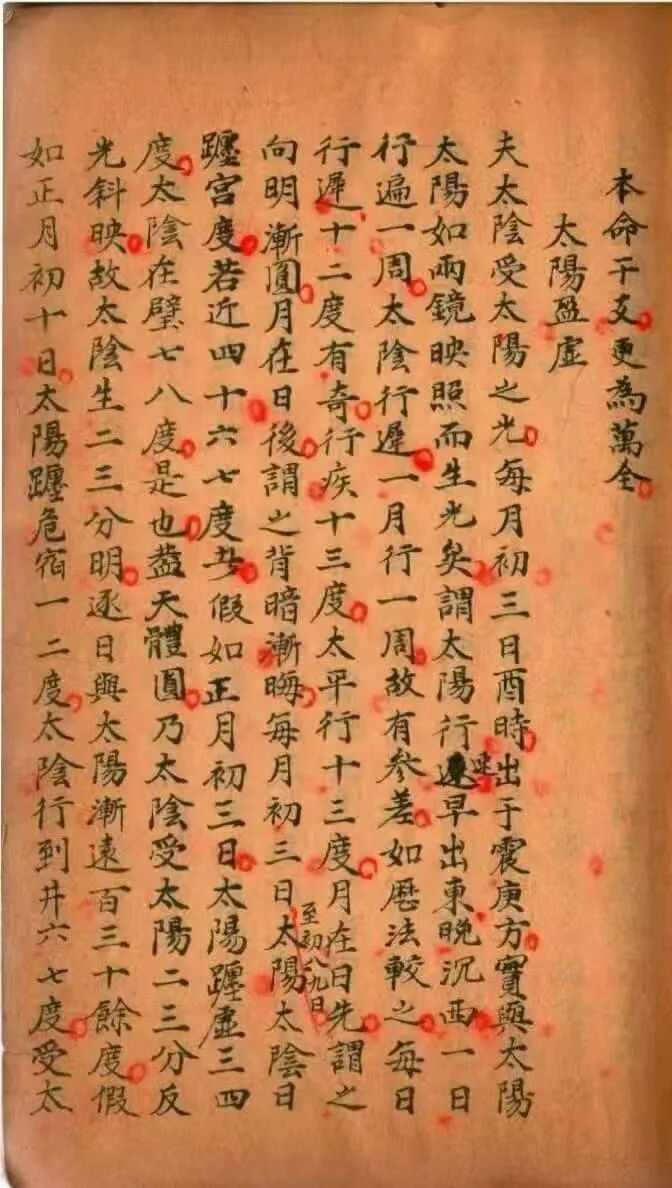 本命干支更為萬全
太陽盈虛
夫太陰受太陽之光每月初三日酉時出于震庚方實與太陽
太陽如兩鏡映照而生光矣謂太陽行速早出東晚沉西一日
行遍一周太陰行遲一月行一周故有參差如歷法較之每日
行遲十二度有奇行疾十三度太平行十三度月在日先謂之
向明漸圓月在日後謂之背暗漸晦每月初三日太陽太陰日
至初八九日
躔宮度若近四十六七度假如正月初三日太陽躔虛三四
度太陰在璧七八度是也蓋天體圓乃太陰受太陽二三分反
光斜映故太陰生二三分明逐日與太陽漸遠百三十餘度假
如正月初十日太陽躔危宿一二度太陰行到井六七度受太